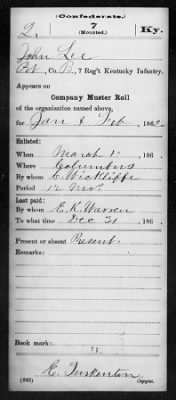 (Confederate.)
2. 7 Ky.
(Mounted.)
John Lee
Pvt, Co. B, 7 Reg't Kentucky Infantry.
Appears on
Company Muster Roll
of the organization named above,
for Jan & Feb, 1862.
Enlisted:
When March 1, 186 .
Where Columbus
By whom C. Wickliffe
Period 12 mos.
Last paid:
By whom E. K. Warren
To what time Dec 31, 186 .
Present or absent Present.
Remarks:
Book mark:
(642) Copyist.